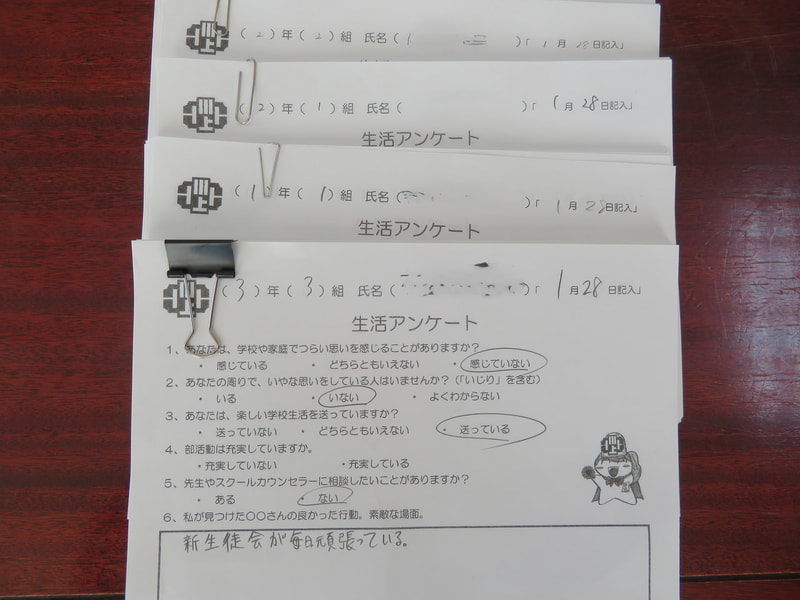 (2)年(2)組 氏名( )「1月28日記入」
(2)年(1)組 氏名( )「1月28日記入」
生活アンケート
(1)年(1)組 氏名( )「1月28日記入」
生活アンケート
(3)年(3)組 氏名( )「1月28日記入」
生活アンケート
1、あなたは、学校や家庭でつらい思いを感じることがありますか？
・ 感じている ・ どちらともいえない ・ 感じていない
2、あなたの周りで、いやな思いをしている人はいませんか？(「いじり」を含む)
・ いる ・ いない ・ よくわからない
3、あなたは、楽しい学校生活を送っていますか？
・ 送っていない ・ どちらともいえない ・ 送っている
4、部活動は充実していますか。
・充実していない ・充実している
5、先生やスクールカウンセラーに相談したいことがありますか？
・ ある ・ ない
6、私が見つけた〇〇さんの良かった行動。素敵な場面。
新生徒会が毎日頑張っている。